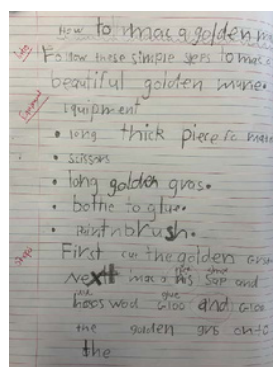 How to mac a golden m
Follow these simple steps to mac a
beautiful golden mane.
Equipment
• long thick piece fo
• scissors
• long golden gras.
• bottle to glue.
• paintnbrush.
Steps
First cut the golden gras
Next mac a his Sap and
hoos wod gloo and Gloo
the golden grs on to
the